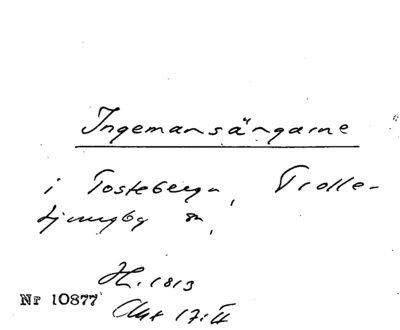 Ingemansängarne
i Tosteberga, Trolle-
Ljungby sn,
H. 1813
Nr 10877
Akt 17:II